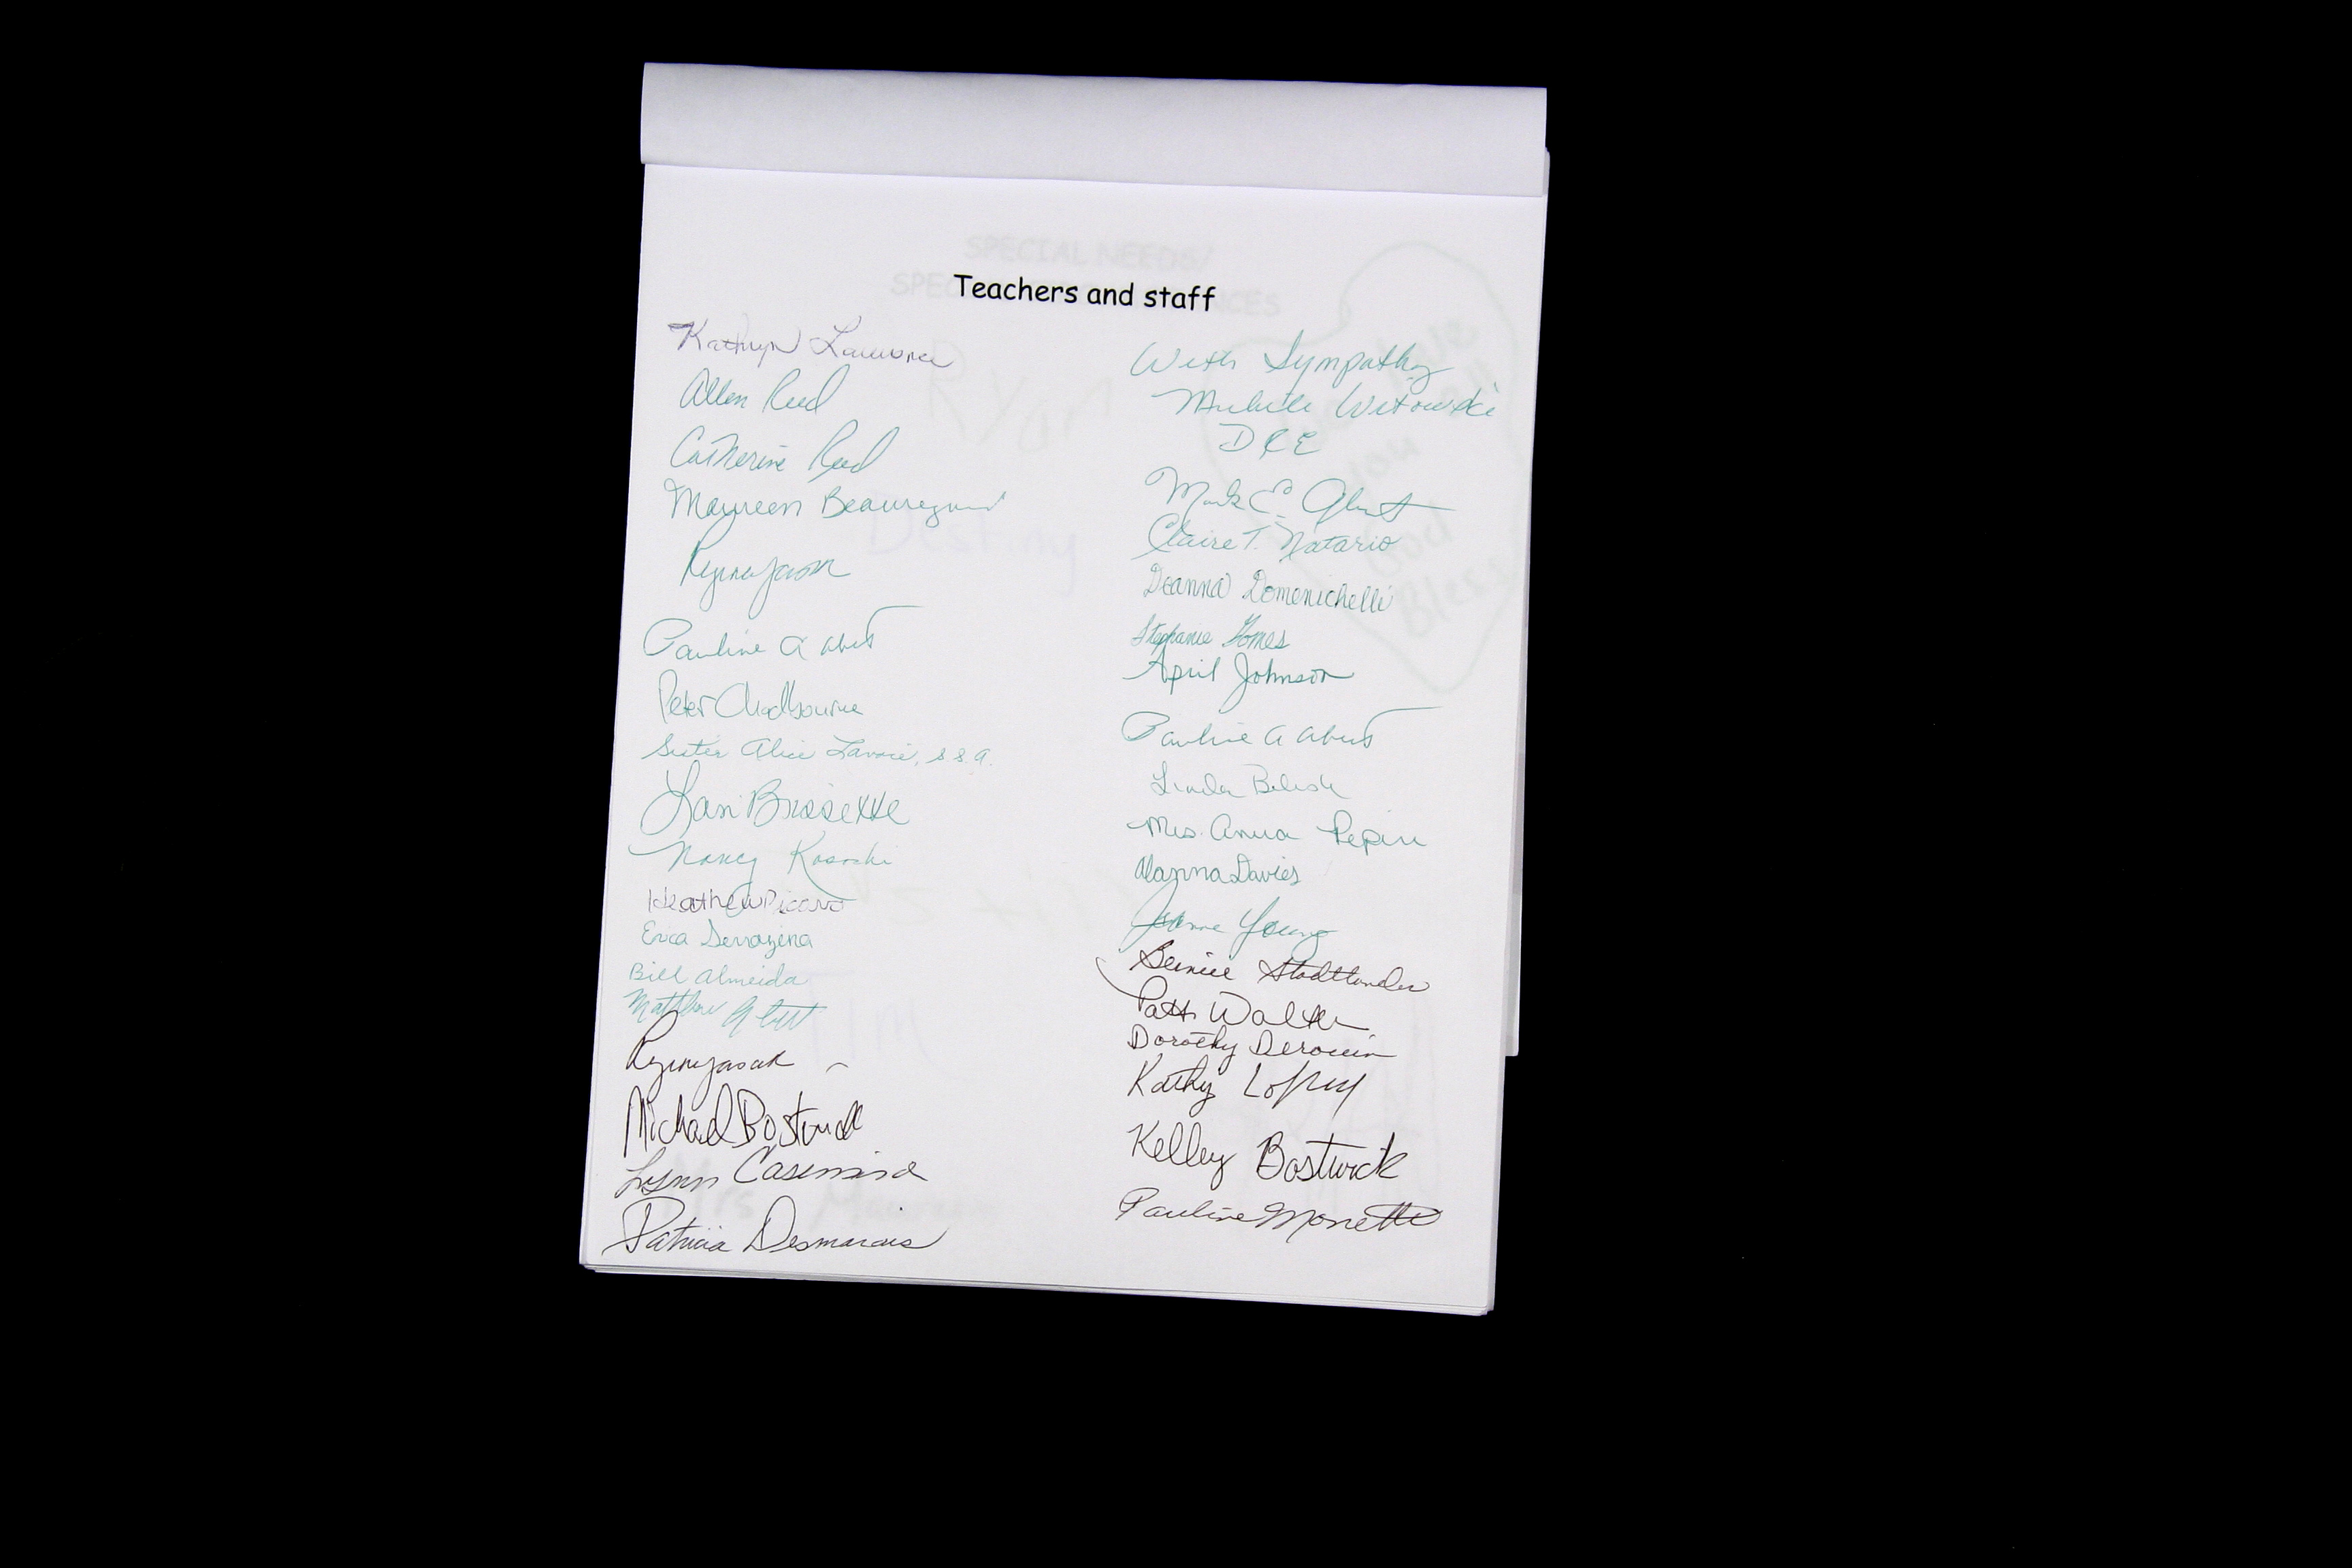 Teachers and staff
Kathryn Lawrence
Allen Reed
Catherine Reed
Maureen Beauregard
Pauline A
Peter Chadbourne
Sister Alice Lavoie, s.s.a.
Lori Brissette
Nancy
Heather Picard
Erica Serrazina
Bill Almeida
Matthew
Michael Bostwick
Lynn Casemiro
Patricia Desmarais
With Sympathy
Michele Witowski
DRE
Mark E.
Claire T. Natario
Deanna Domenichelli
Stephanie Gomes
April Johnson
Pauline A
Linda
Mrs. Anna Pepin
Alanna Davies
Young
Bernice Stadtlander
Patti Walker
Dorothy Derouin
Kathy Lopez
Kelley Bostwick
Pauline Monette